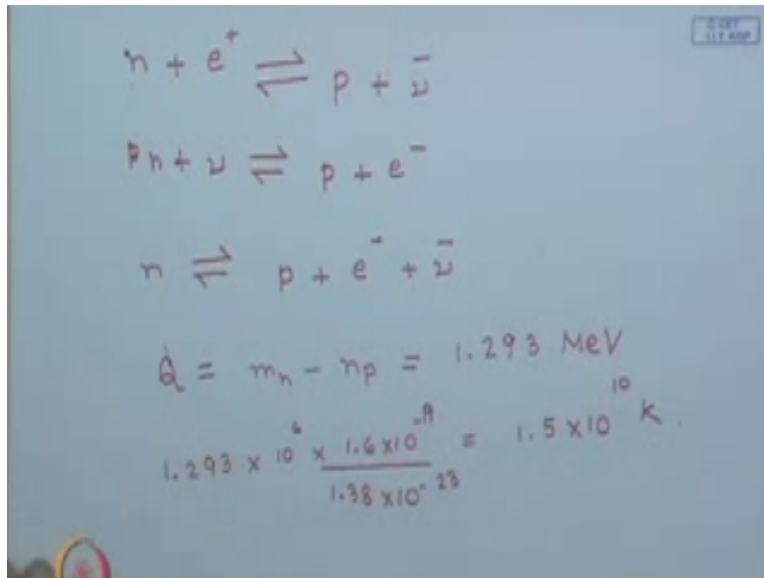 n + e⁺ ⇌ p + ν̄
n + ν ⇌ p + e⁻
n ⇌ p + e⁻ + ν̄
Q = mₙ - n_p = 1.293 MeV
1.293 × 10⁶ × 1.6×10⁻¹⁹ / 1.38×10⁻²³ = 1.5×10¹⁰ K.